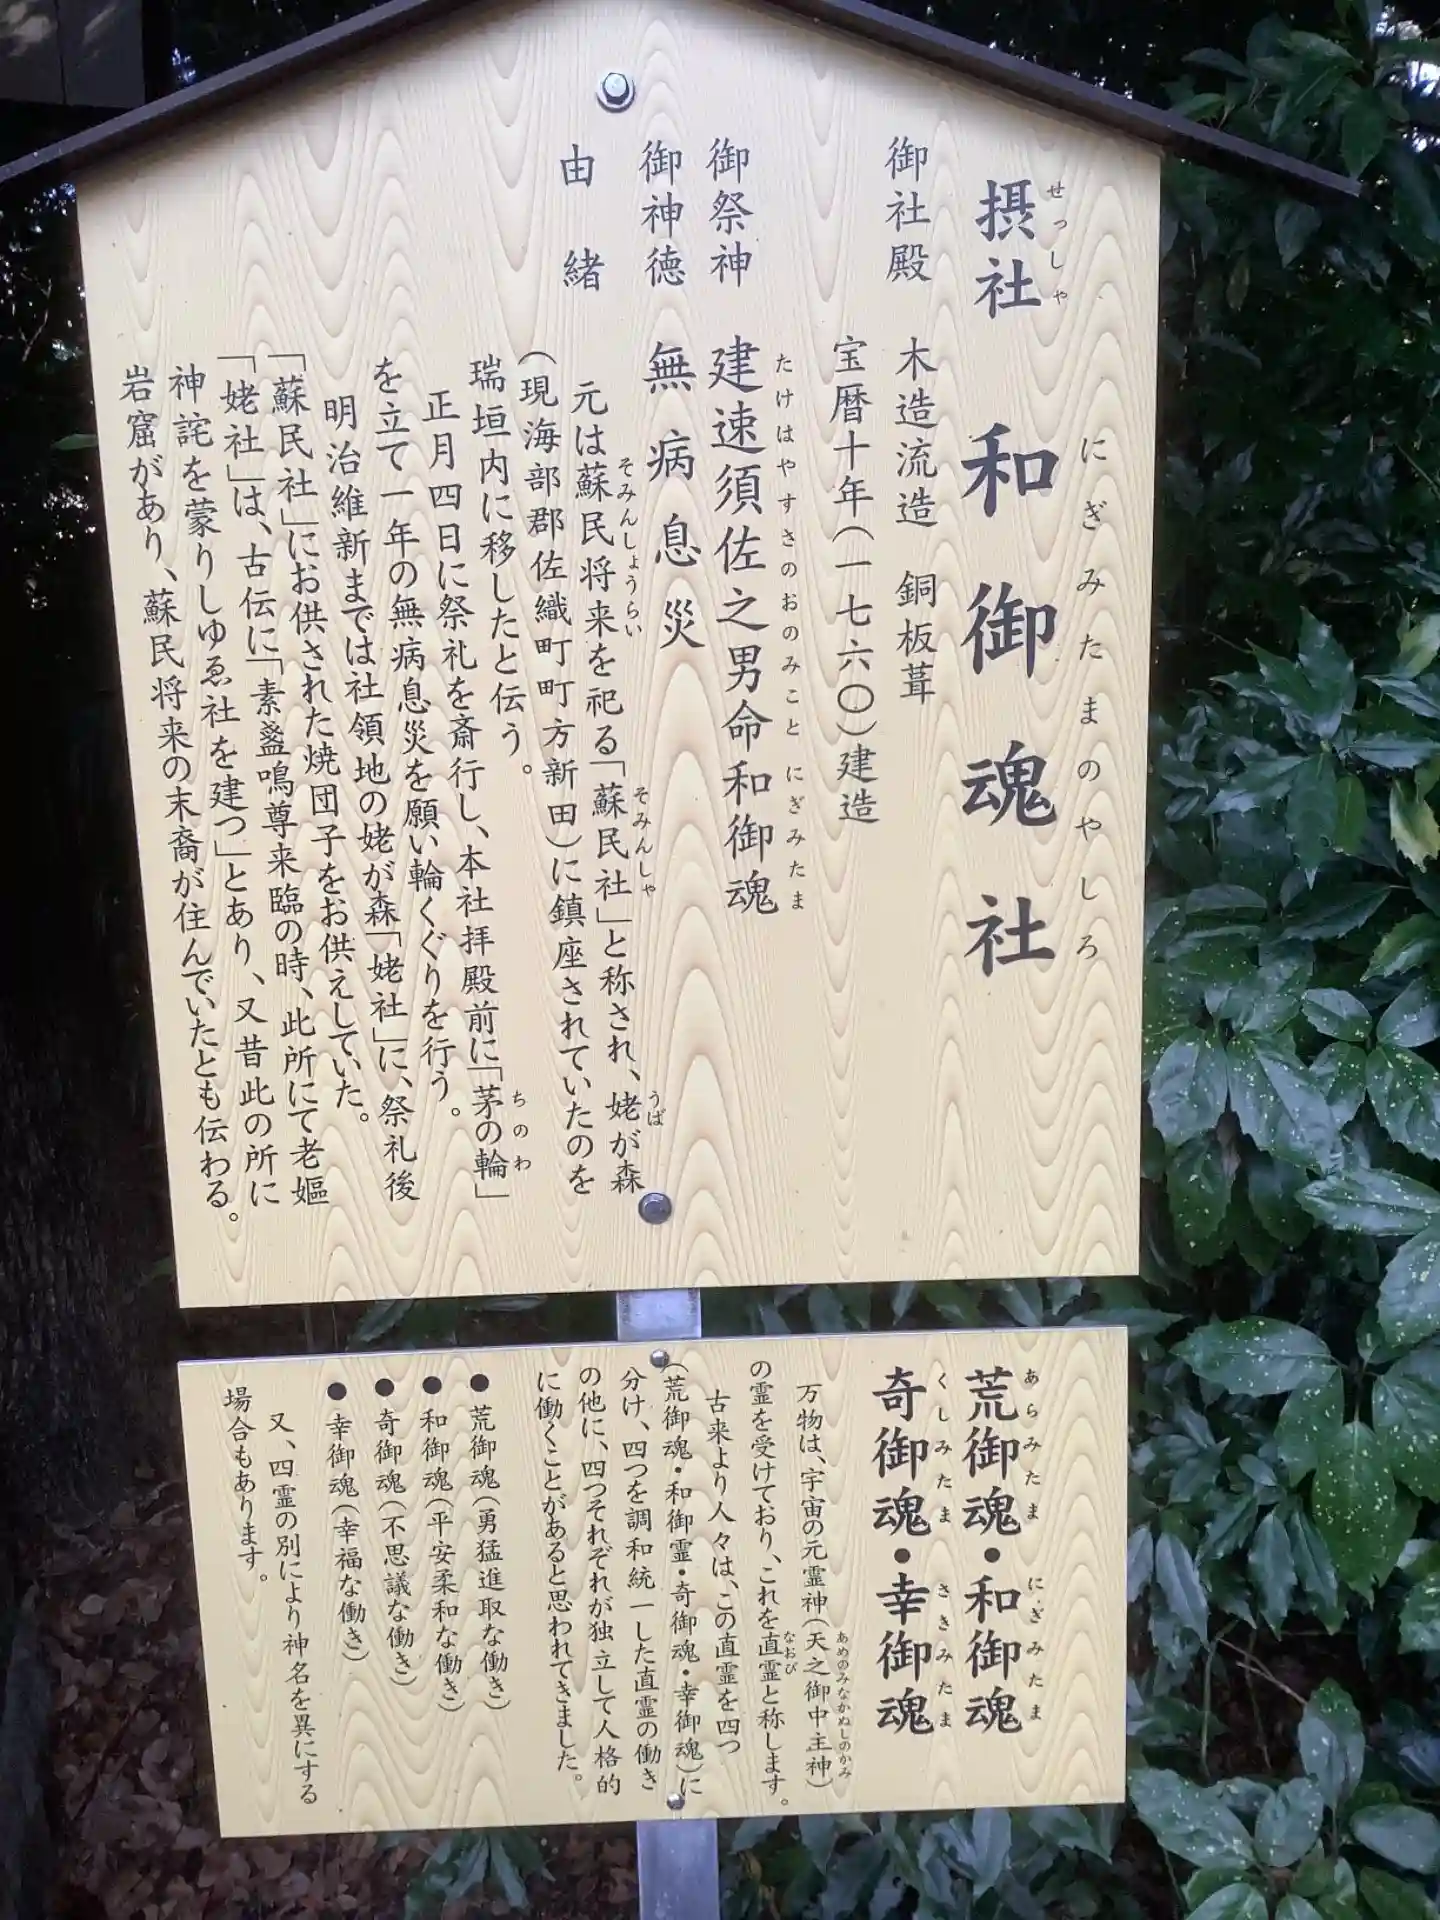 摂社
せっしゃ
和御魂社
にぎみたまのやしろ
御社殿　木造流造　銅板葺
宝暦十年(一七六〇)建造
御祭神　建速須佐之男命和御魂
たけはやすさのおのみこと　にぎみたま
御神徳　無病息災
由緒　元は蘇民将来を祀る「蘇民社」と称され、姥が森
そみんしょうらい　そみんしゃ　うば
(現海部郡佐織町町方新田)に鎮座されていたのを
瑞垣内に移したと伝う。
正月四日に祭礼を斎行し、本社拝殿前に「茅の輪」
ちのわ
を立て一年の無病息災を願い輪くぐりを行う。
明治維新までは社領地の姥が森「姥社」に、祭礼後
「蘇民社」にお供された焼団子をお供えしていた。
「姥社」は、古伝に「素盞鳴尊来臨の時、此所にて老嫗
神詫を蒙りしゆゑ社を建つ」とあり、又昔此の所に
岩窟があり、蘇民将来の末裔が住んでいたとも伝わる。
荒御魂・和御魂
あらみたま　にぎみたま
奇御魂・幸御魂
くしみたま　さきみたま
万物は、宇宙の元霊神(天之御中主神)
あめのみなかぬしのかみ
の霊を受けており、これを直霊と称します。
なおび
古来より人々は、この直霊を四つ
(荒御魂・和御霊・奇御魂・幸御魂)に
分け、四つを調和統一した直霊の働き
の他に、四つそれぞれが独立して人格的
に働くことがあると思われてきました。
●荒御魂(勇猛進取な働き)
●和御魂(平安柔和な働き)
●奇御魂(不思議な働き)
●幸御魂(幸福な働き)
又、四霊の別により神名を異にする
場合もあります。